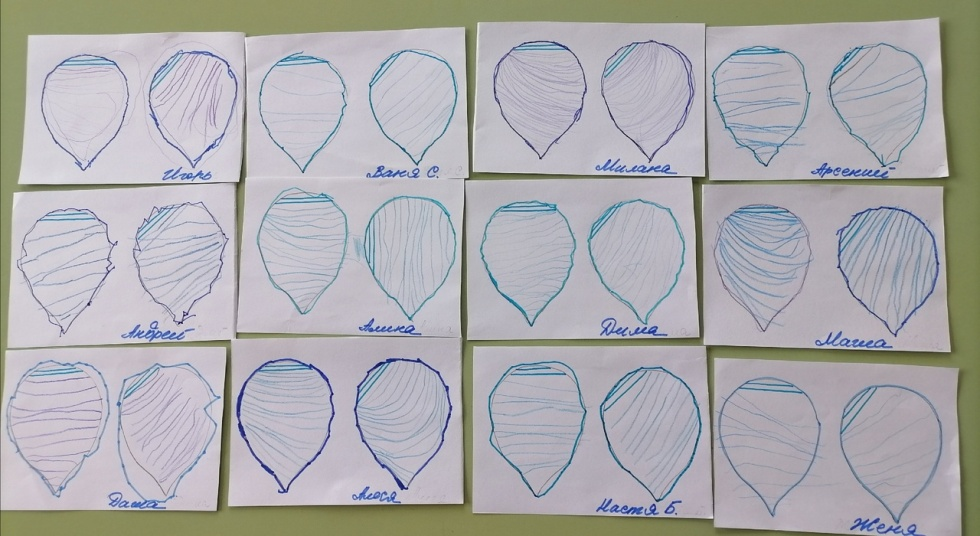 Игорь
Ваня С.
Милана
Арсений
Андрей
Алина
Дима
Маша
Даша
Алеся
Настя Б.
Женя